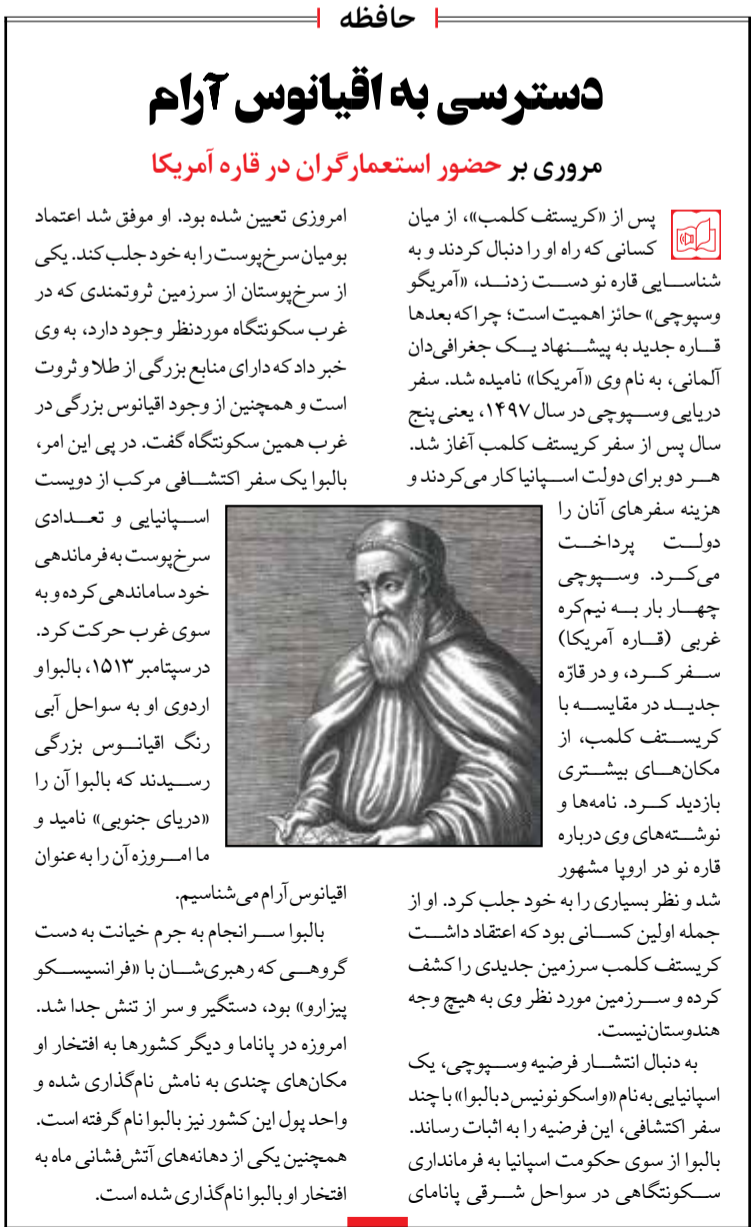 حافظه
دسترسی به اقیانوس آرام
مروری بر حضور استعمارگران در قاره آمریکا
پس از «کریستف کلمب»، از میان
کسانی که راه او را دنبال کردند و به
شناسایی قاره نو دست زدند، «آمریگو
وسپوچی» حائز اهمیت است؛ چراکه بعدها
قاره جدید به پیشنهاد یک جغرافی‌دان
آلمانی، به نام وی «آمریکا» نامیده شد. سفر
دریایی وسپوچی در سال ۱۴۹۷، یعنی پنج
سال پس از سفر کریستف کلمب آغاز شد.
هر دو برای دولت اسپانیا کار می‌کردند و
هزینه سفرهای آنان را
دولت پرداخت
می‌کرد. وسپوچی
چهار بار به نیم‌کره
غربی (قاره آمریکا)
سفر کرد، و در قارّه
جدید در مقایسه با
کریستف کلمب، از
مکان‌های بیشتری
بازدید کرد. نامه‌ها و
نوشته‌های وی درباره
قاره نو در اروپا مشهور
شد و نظر بسیاری را به خود جلب کرد. او از
جمله اولین کسانی بود که اعتقاد داشت
کریستف کلمب سرزمین جدیدی را کشف
کرده و سرزمین مورد نظر وی به هیچ وجه
هندوستان نیست.
به دنبال انتشار فرضیه وسپوچی، یک
اسپانیایی به نام «واسکو نونیس د بالبوا» با چند
سفر اکتشافی، این فرضیه را به اثبات رساند.
بالبوا از سوی حکومت اسپانیا به فرمانداری
سکونتگاهی در سواحل شرقی پانامای
امروزی تعیین شده بود. او موفق شد اعتماد
بومیان سرخ‌پوست را به خود جلب کند. یکی
از سرخ‌پوستان از سرزمین ثروتمندی که در
غرب سکونتگاه موردنظر وجود دارد، به وی
خبر داد که دارای منابع بزرگی از طلا و ثروت
است و همچنین از وجود اقیانوس بزرگی در
غرب همین سکونتگاه گفت. در پی این امر،
بالبوا یک سفر اکتشافی مرکب از دویست
اسپانیایی و تعدادی
سرخ‌پوست به فرماندهی
خود ساماندهی کرده و به
سوی غرب حرکت کرد.
در سپتامبر ۱۵۱۳، بالبوا و
اردوی او به سواحل آبی
رنگ اقیانوس بزرگی
رسیدند که بالبوا آن را
«دریای جنوبی» نامید و
ما امروزه آن را به عنوان
اقیانوس آرام می‌شناسیم.
بالبوا سرانجام به جرم خیانت به دست
گروهی که رهبری‌شان با «فرانسیسکو
پیزارو» بود، دستگیر و سر از تنش جدا شد.
امروزه در پاناما و دیگر کشورها به افتخار او
مکان‌های چندی به نامش نام‌گذاری شده و
واحد پول این کشور نیز بالبوا نام گرفته است.
همچنین یکی از دهانه‌های آتش‌فشانی ماه به
افتخار او بالبوا نام‌گذاری شده است.